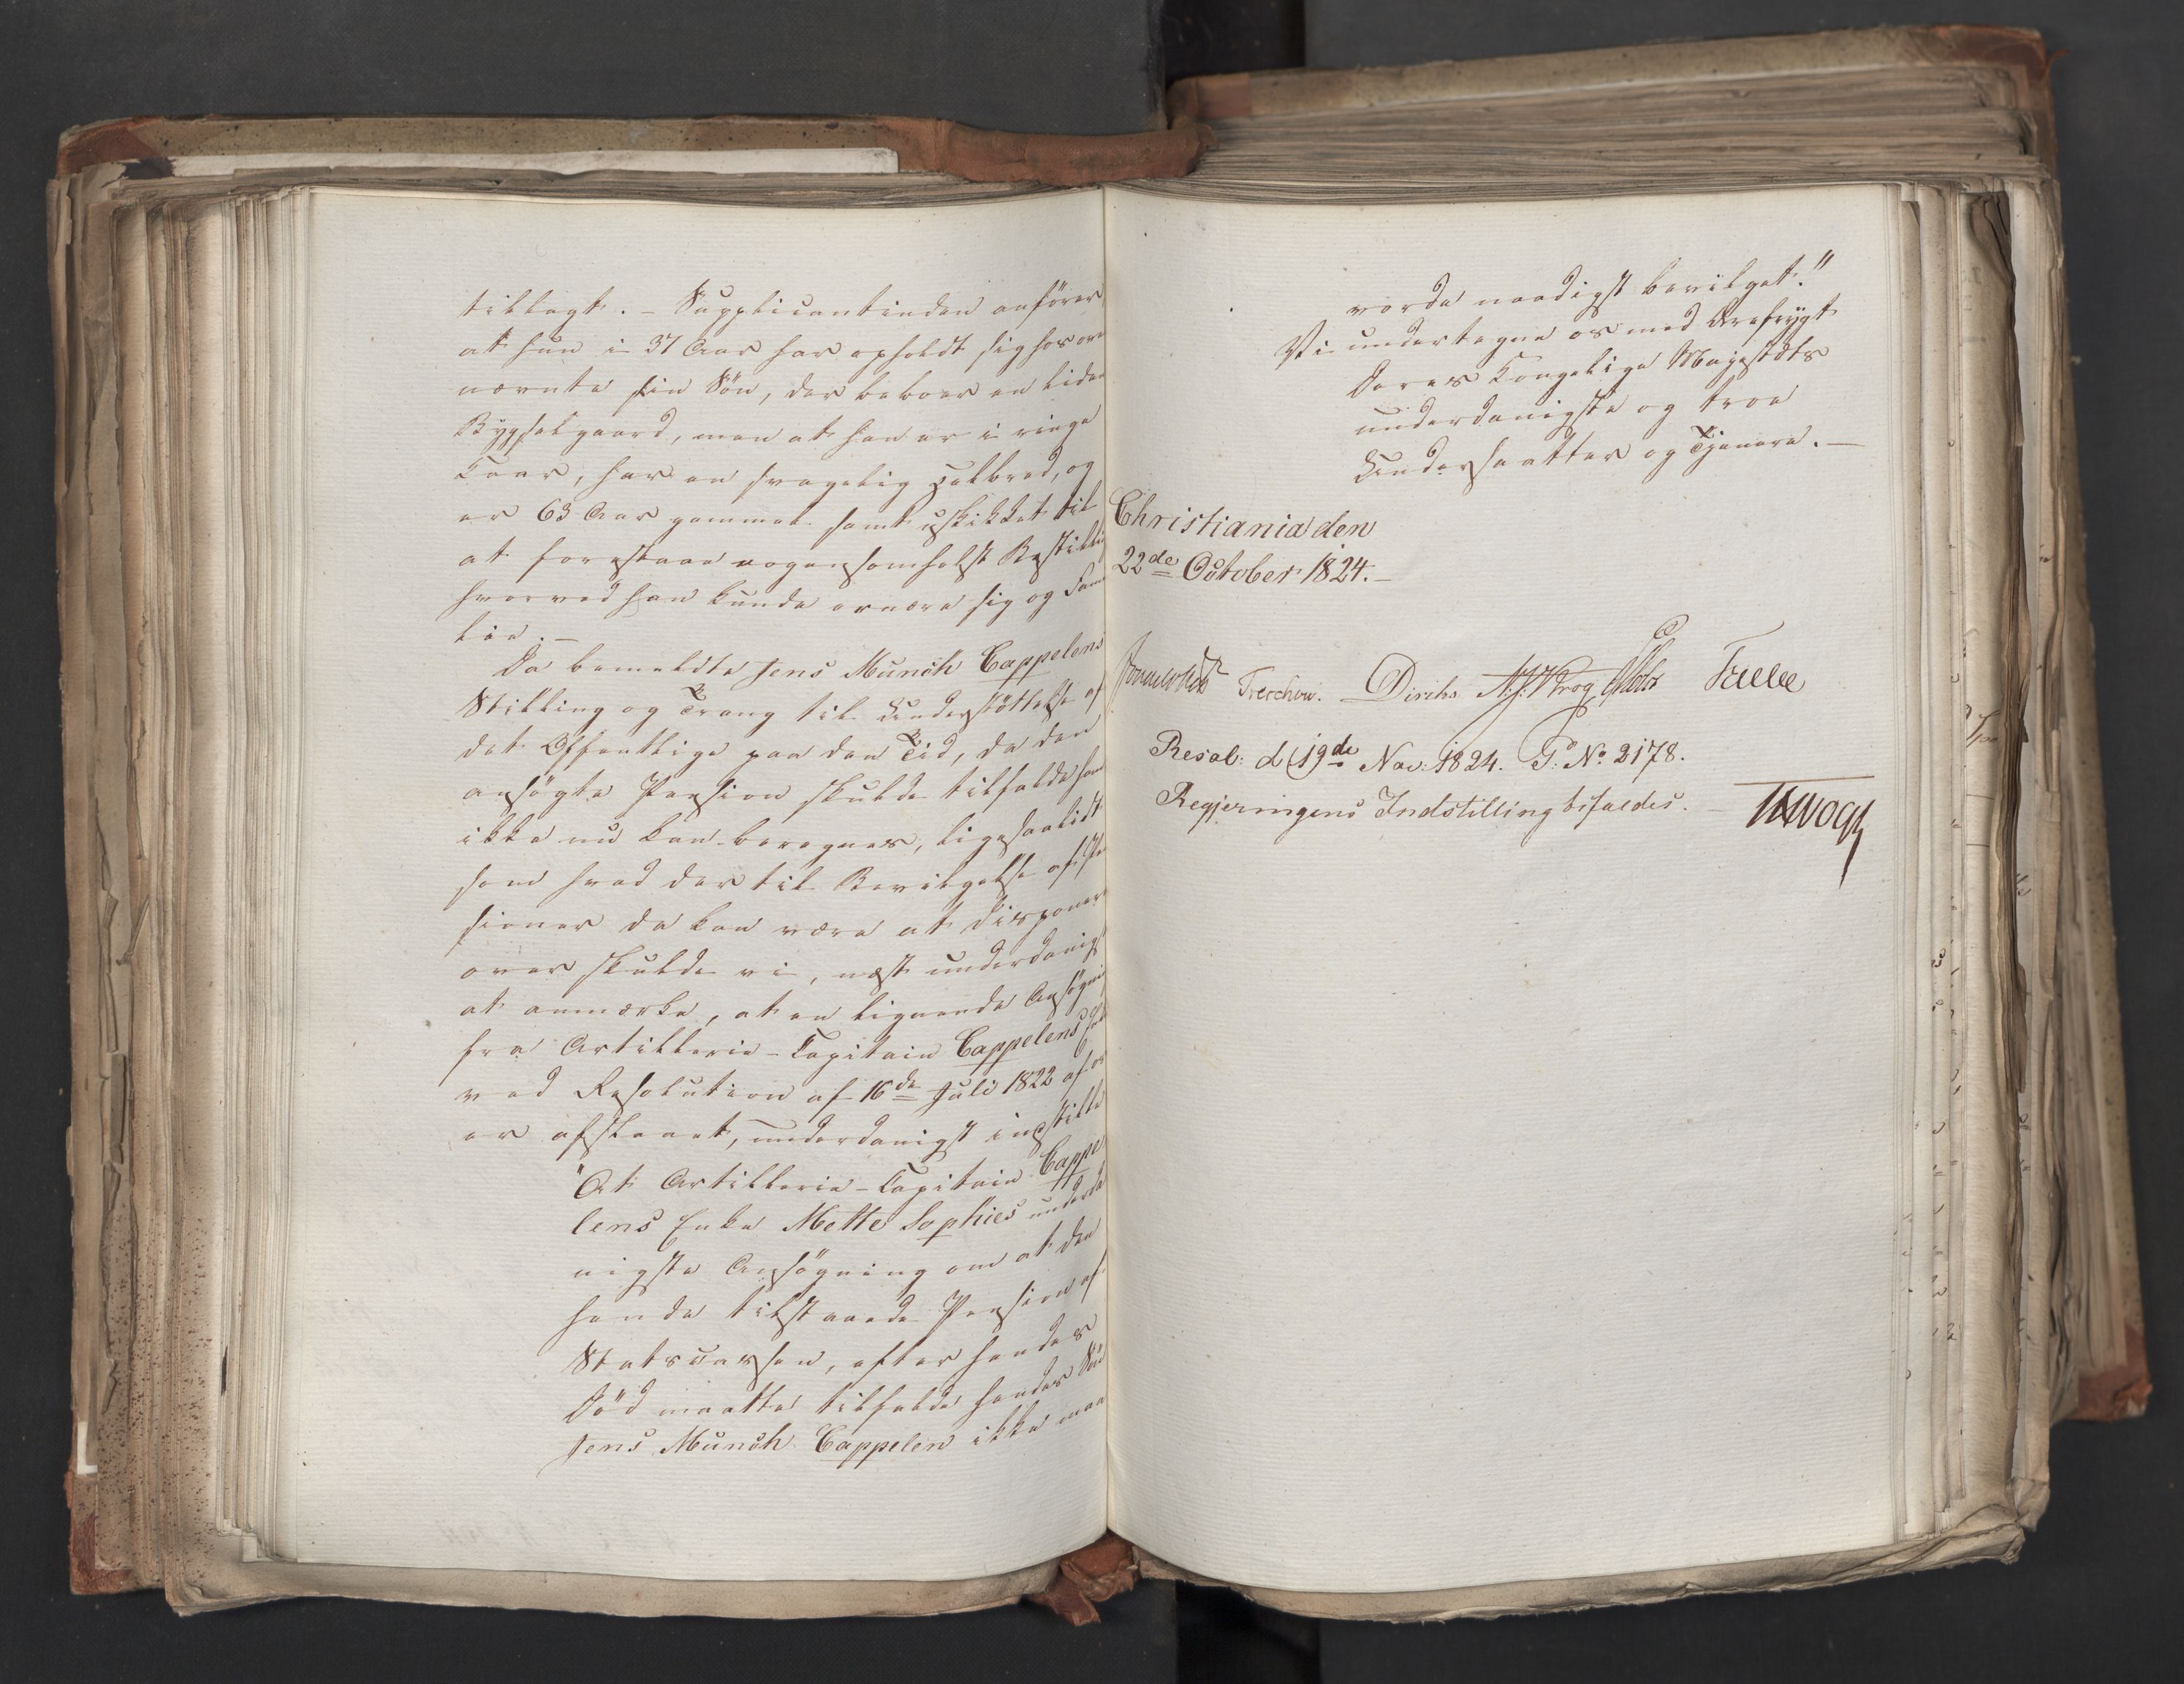 tillagt. - Supplicantinden anfører
at hun i 37 Aar har opholdt sig hos ov
nævnte sin Søn, der beboer en liden
Bygselgaard, men at han er i ringe
Kaar, har en svagelig Helbred, og
er 63 Aar gammel samt uskikket til
at forestaae nogensomhelst Bestilli
hvorved han kunde ernære sig og Fami
lie. -
Da bemeldte Jens Munch Cappelens
Stilling og Trang til Understøttelse af
det Offentlige paa den Tid, da den
ansøgte Pension skulde tilfalde ham
ikke nu kan beregnes, ligesaalidt
som hvad der til Bevilgelse af Pe
sioner da kan være at disponere
over skulde vi, næst underdanigst
at anmærke, at en lignende Ansøgni
fra Artillerie-Capitain Cappelens
ved Resolution af 16de Juli 1822
er afslaaet, underdanigst indstille
"At Artillerie-Capitain Cappe
lens Enke Mette Sophies underda
nigste Ansøgning om at den
hende tilstaaede Pension af
Statscassen, efter hendes
Død maatte tilfalde hendes Søn
Jens Munch Cappelen ikke maa
vorde naadigst bevilget."
Vi undertegne os med Ærefrygt
Deres Kongelige Majestæts
underdanigste og troe
Undersaatter og Tjenere. -
Christiania den
22de October 1824. -
Sommerhielm Treschow. Diriks N. J. Krog Fasting
Resol: d. 19de Nov: 1824. P. No 2178.
Regjeringens Indstilling bifaldes. -